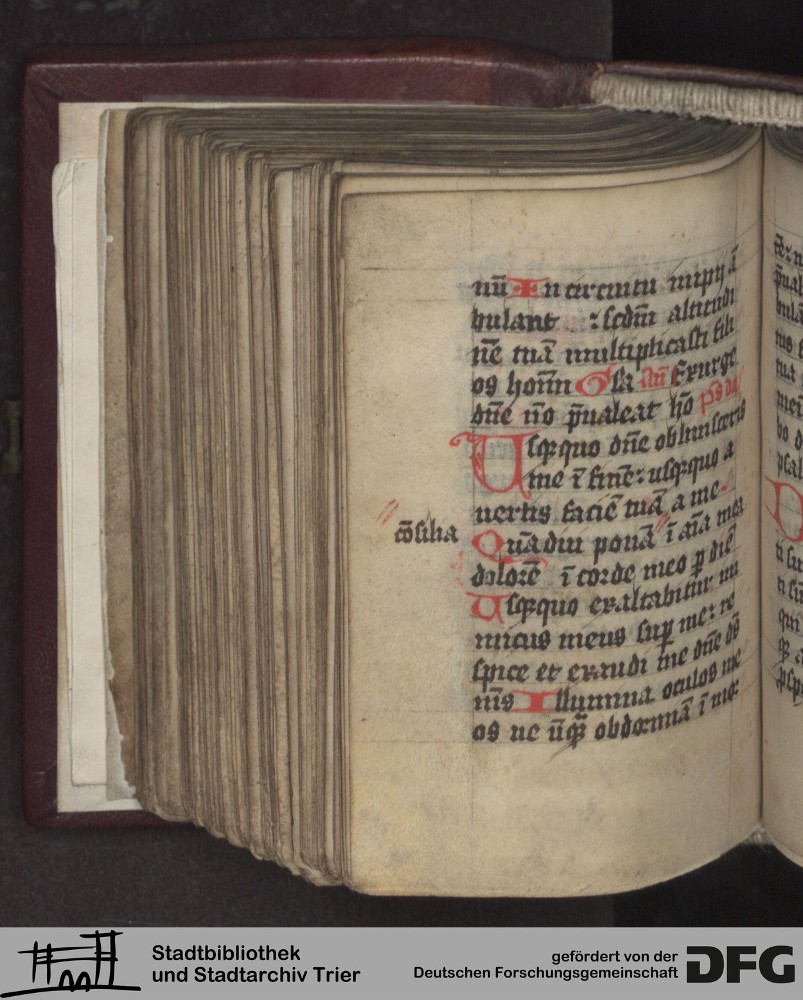 nū In circuitu impij ā
bulant : scdm altitudi
nē tuā multiplicasti fili
os homī Gla an̄ Exurge
dn̄e nō p̄ualeat hō ps dd
Usq̨quo dn̄e obliuisceris
me ī finē: usq̨quo a
uertis faciē tuā a me
cōsilia
Quādiu ponā ī aīa mea
dolorē ī corde meo p diē
Usq̨quo exaltabitur ini
micus meus sup me: re
spice et exaudi me dn̄e ds̄
ms̄ Illumina oculos me
os ne ūq̄ obdormiā ī mor
Stadtbibliothek
und Stadtarchiv Trier
gefördert von der
Deutschen Forschungsgemeinschaft
DFG